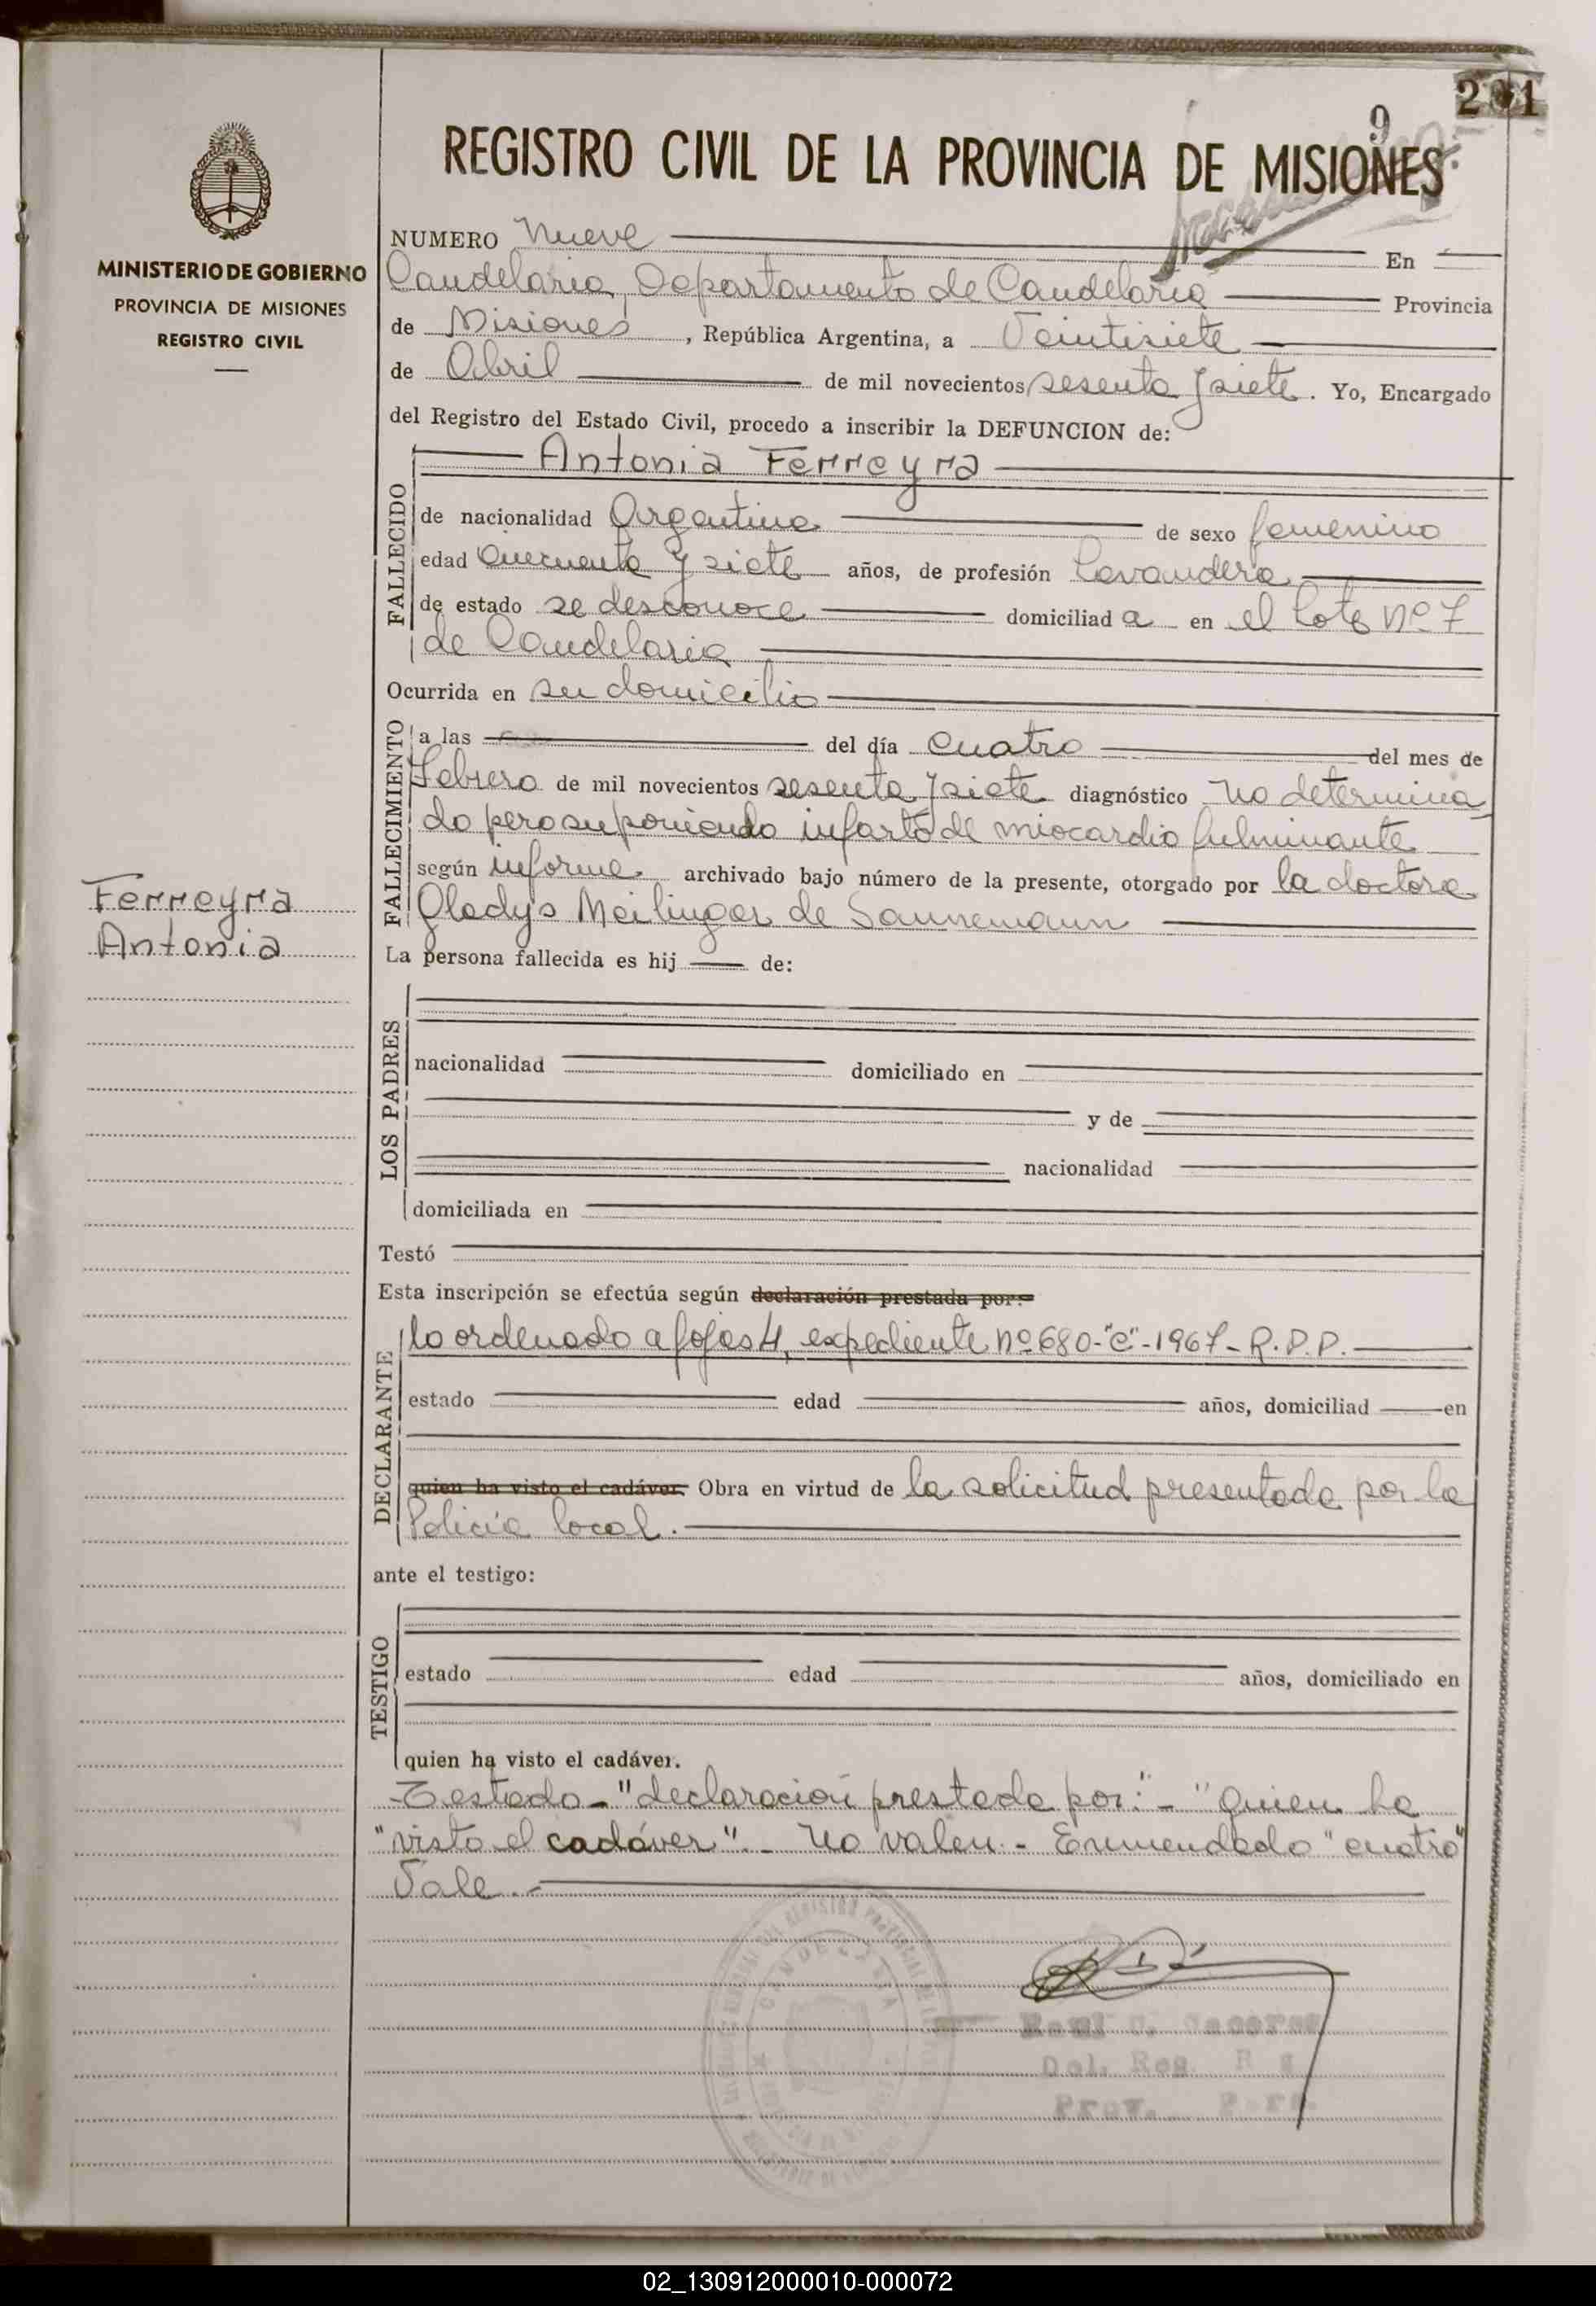 201
9
REGISTRO CIVIL DE LA PROVINCIA DE MISIONES
MINISTERIO DE GOBIERNO
PROVINCIA DE MISIONES
REGISTRO CIVIL
NUMERO Nueve En
Candelaria, Departamento de Candelaria Provincia
de Misiones, República Argentina, a Veintisiete
de Abril de mil novecientos sesenta y siete. Yo, Encargado
del Registro del Estado Civil, procedo a inscribir la DEFUNCION de:
Antonia Ferreyra
FALLECIDO
de nacionalidad Argentina de sexo femenino
edad Cincuenta y siete años, de profesión Lavandera
de estado se desconoce domiciliada en el Lote Nº 7
de Candelaria
Ocurrida en su domicilio
FALLECIMIENTO
a las del día Cuatro del mes de
Febrero de mil novecientos sesenta y siete diagnóstico No determina
do pero suponiendo infarto de miocardio fulminante
según informe archivado bajo número de la presente, otorgado por la doctora
Gladys Meilinger de Sannemann
Ferreyra
Antonia
La persona fallecida es hij de:
LOS PADRES
nacionalidad domiciliado en
y de
nacionalidad
domiciliada en
Testó
Esta inscripción se efectúa según declaración prestada por:
DECLARANTE
lo ordenado a fojas 4, expediente Nº 680-"C"-1967- R.P.P.
estado edad años, domiciliad en
quien ha visto el cadáver. Obra en virtud de la solicitud presentada por la
Policía local.
ante el testigo:
TESTIGO
estado edad años, domiciliado en
quien ha visto el cadáver.
Testado- "declaración prestada por:"- "quien ha
"visto el cadáver".- No valen.- Enmendado "cuatro"
Vale.-
CANDELARIA
Raul C. Caceres
Del. Reg.
Prov.
02_130912000010-000072